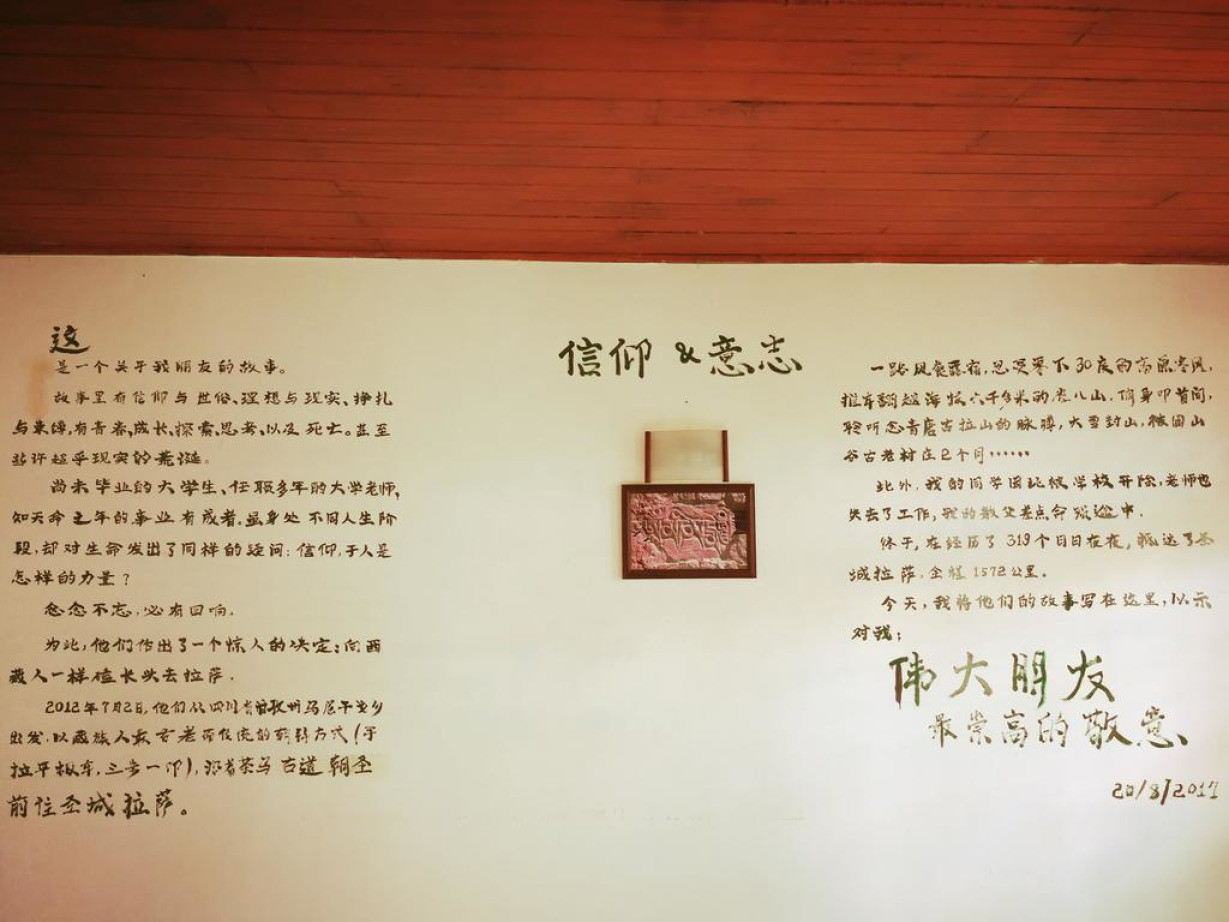 信仰 & 意志
这
是一个关于我朋友的故事。
故事里有信仰与世俗、理想与现实、挣扎
与束缚,有青春、成长、探索、思考、以及死亡。甚至
些许超乎现实的荒诞。
尚未毕业的大学生、任职多年的大学老师,
知天命之年的事业有成者。虽身处不同人生阶
段,却对生命发出了同样的疑问:信仰,于人是
怎样的力量?
念念不忘,必有回响。
为此,他们作出了一个惊人的决定:向西
藏人一样磕长头去拉萨。
2012年7月2日,他们从四川省甘孜州马尼干戈乡
出发,以藏族人最古老而传统的朝拜方式(手
拉平板车,三步一叩),沿着茶马古道朝圣
前往圣城拉萨。
一路风餐露宿,忍受零下30度的高原寒风,
推车翻越海拔六千多米的雀儿山。俯身叩首间,
聆听念青唐古拉山的脉搏,大雪封山,被困山
谷古老村庄2个月······
此外,我的同学因此被学校开除,老师也
失去了工作,我的教父差点命殒途中。
终于,在经历了319个日日夜夜,抵达了圣
城拉萨,全程1572公里。
今天,我将他们的故事写在这里,以示
对我;
伟大朋友
最崇高的敬意、
20/8/2017